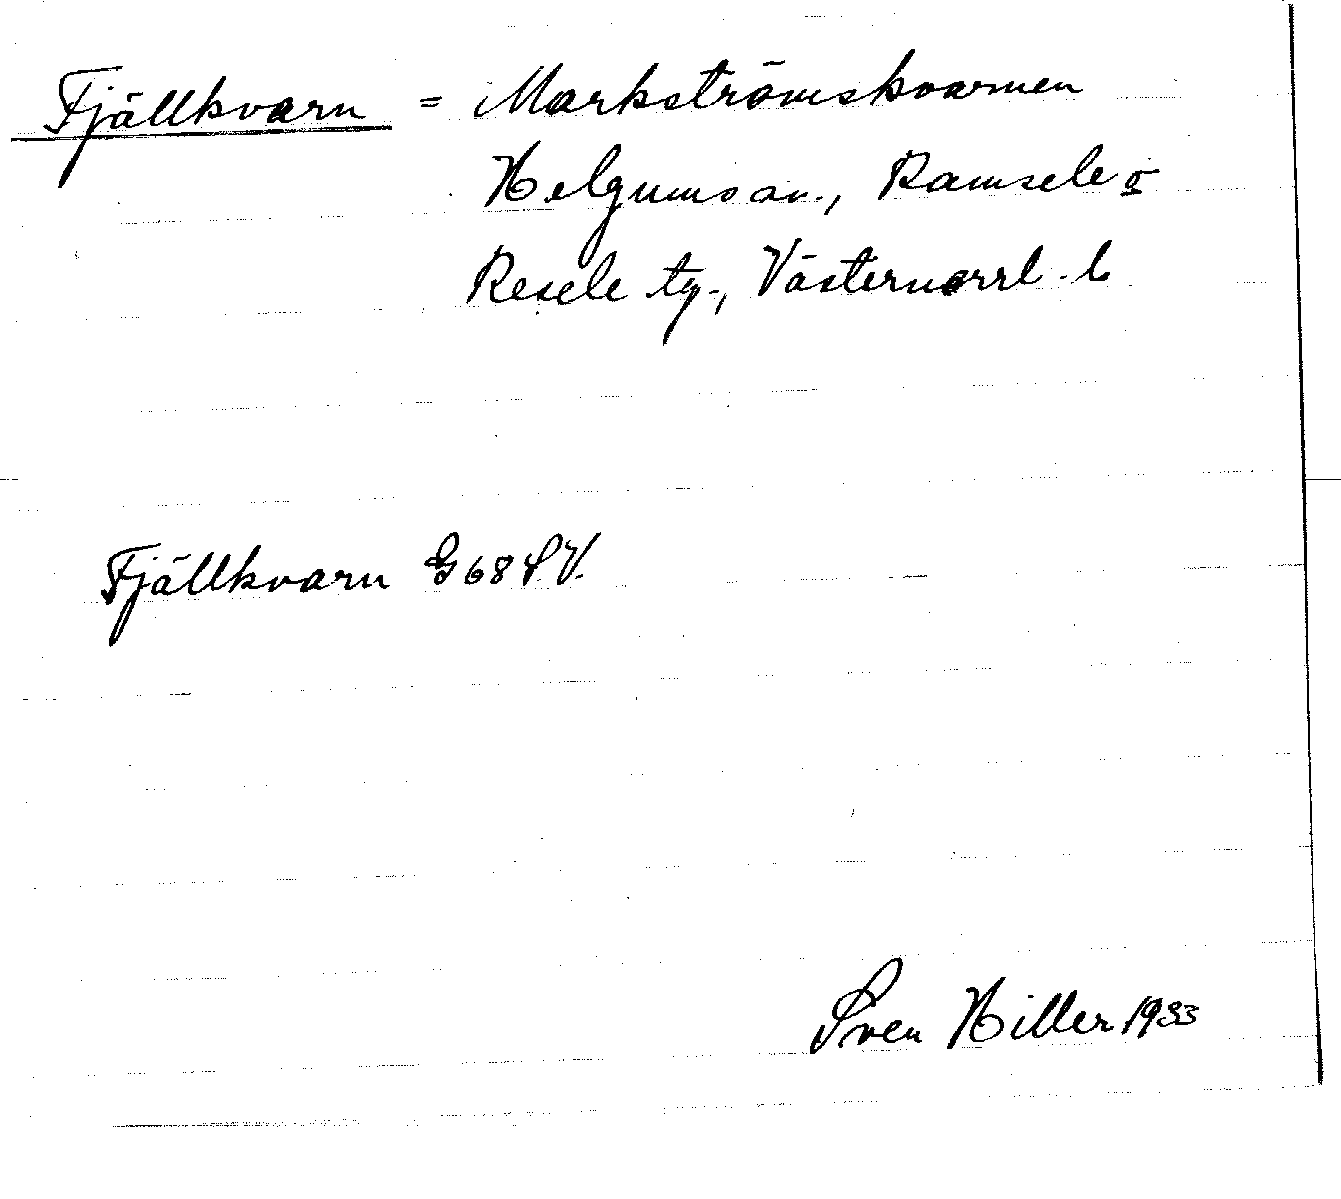 Fjällkvarn = Markströmskvarnen
Helgumsån., Ramsele o
Resele tg., Västernorrl. l.
Fjällkvarn G 68 S.V.
Sven Hiller 1933